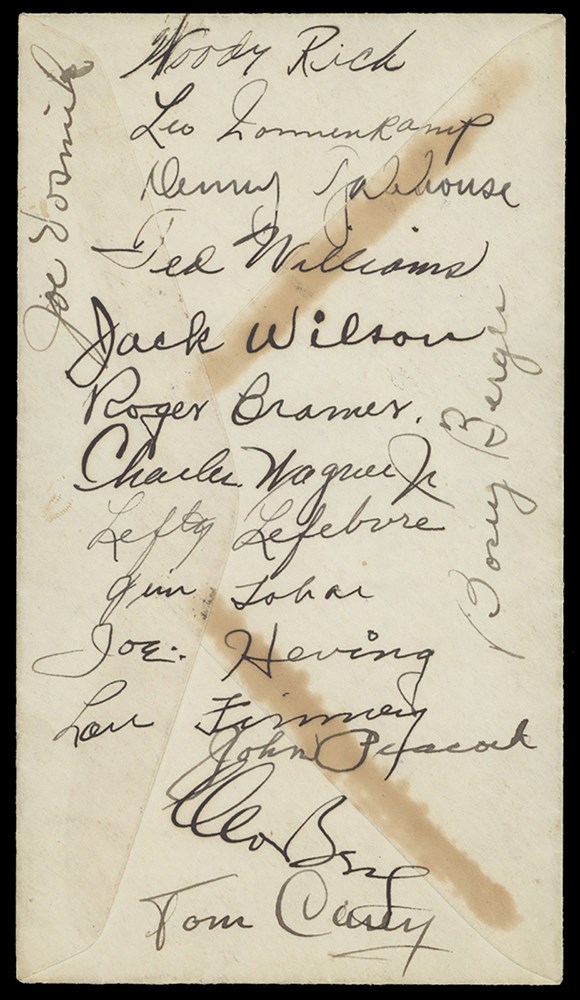 Woody Rich
Leo Nonnenkamp
Denny Galehouse
Ted Williams
Jack Wilson
Roger Cramer.
Charles Wagner Jr
Lefty Lefebvre
Jim Tabar
Joe. Heving
Lou Finney
John Peacock
Moe Berg
Tom Carey
Joe Vosmik
Bosey Berger